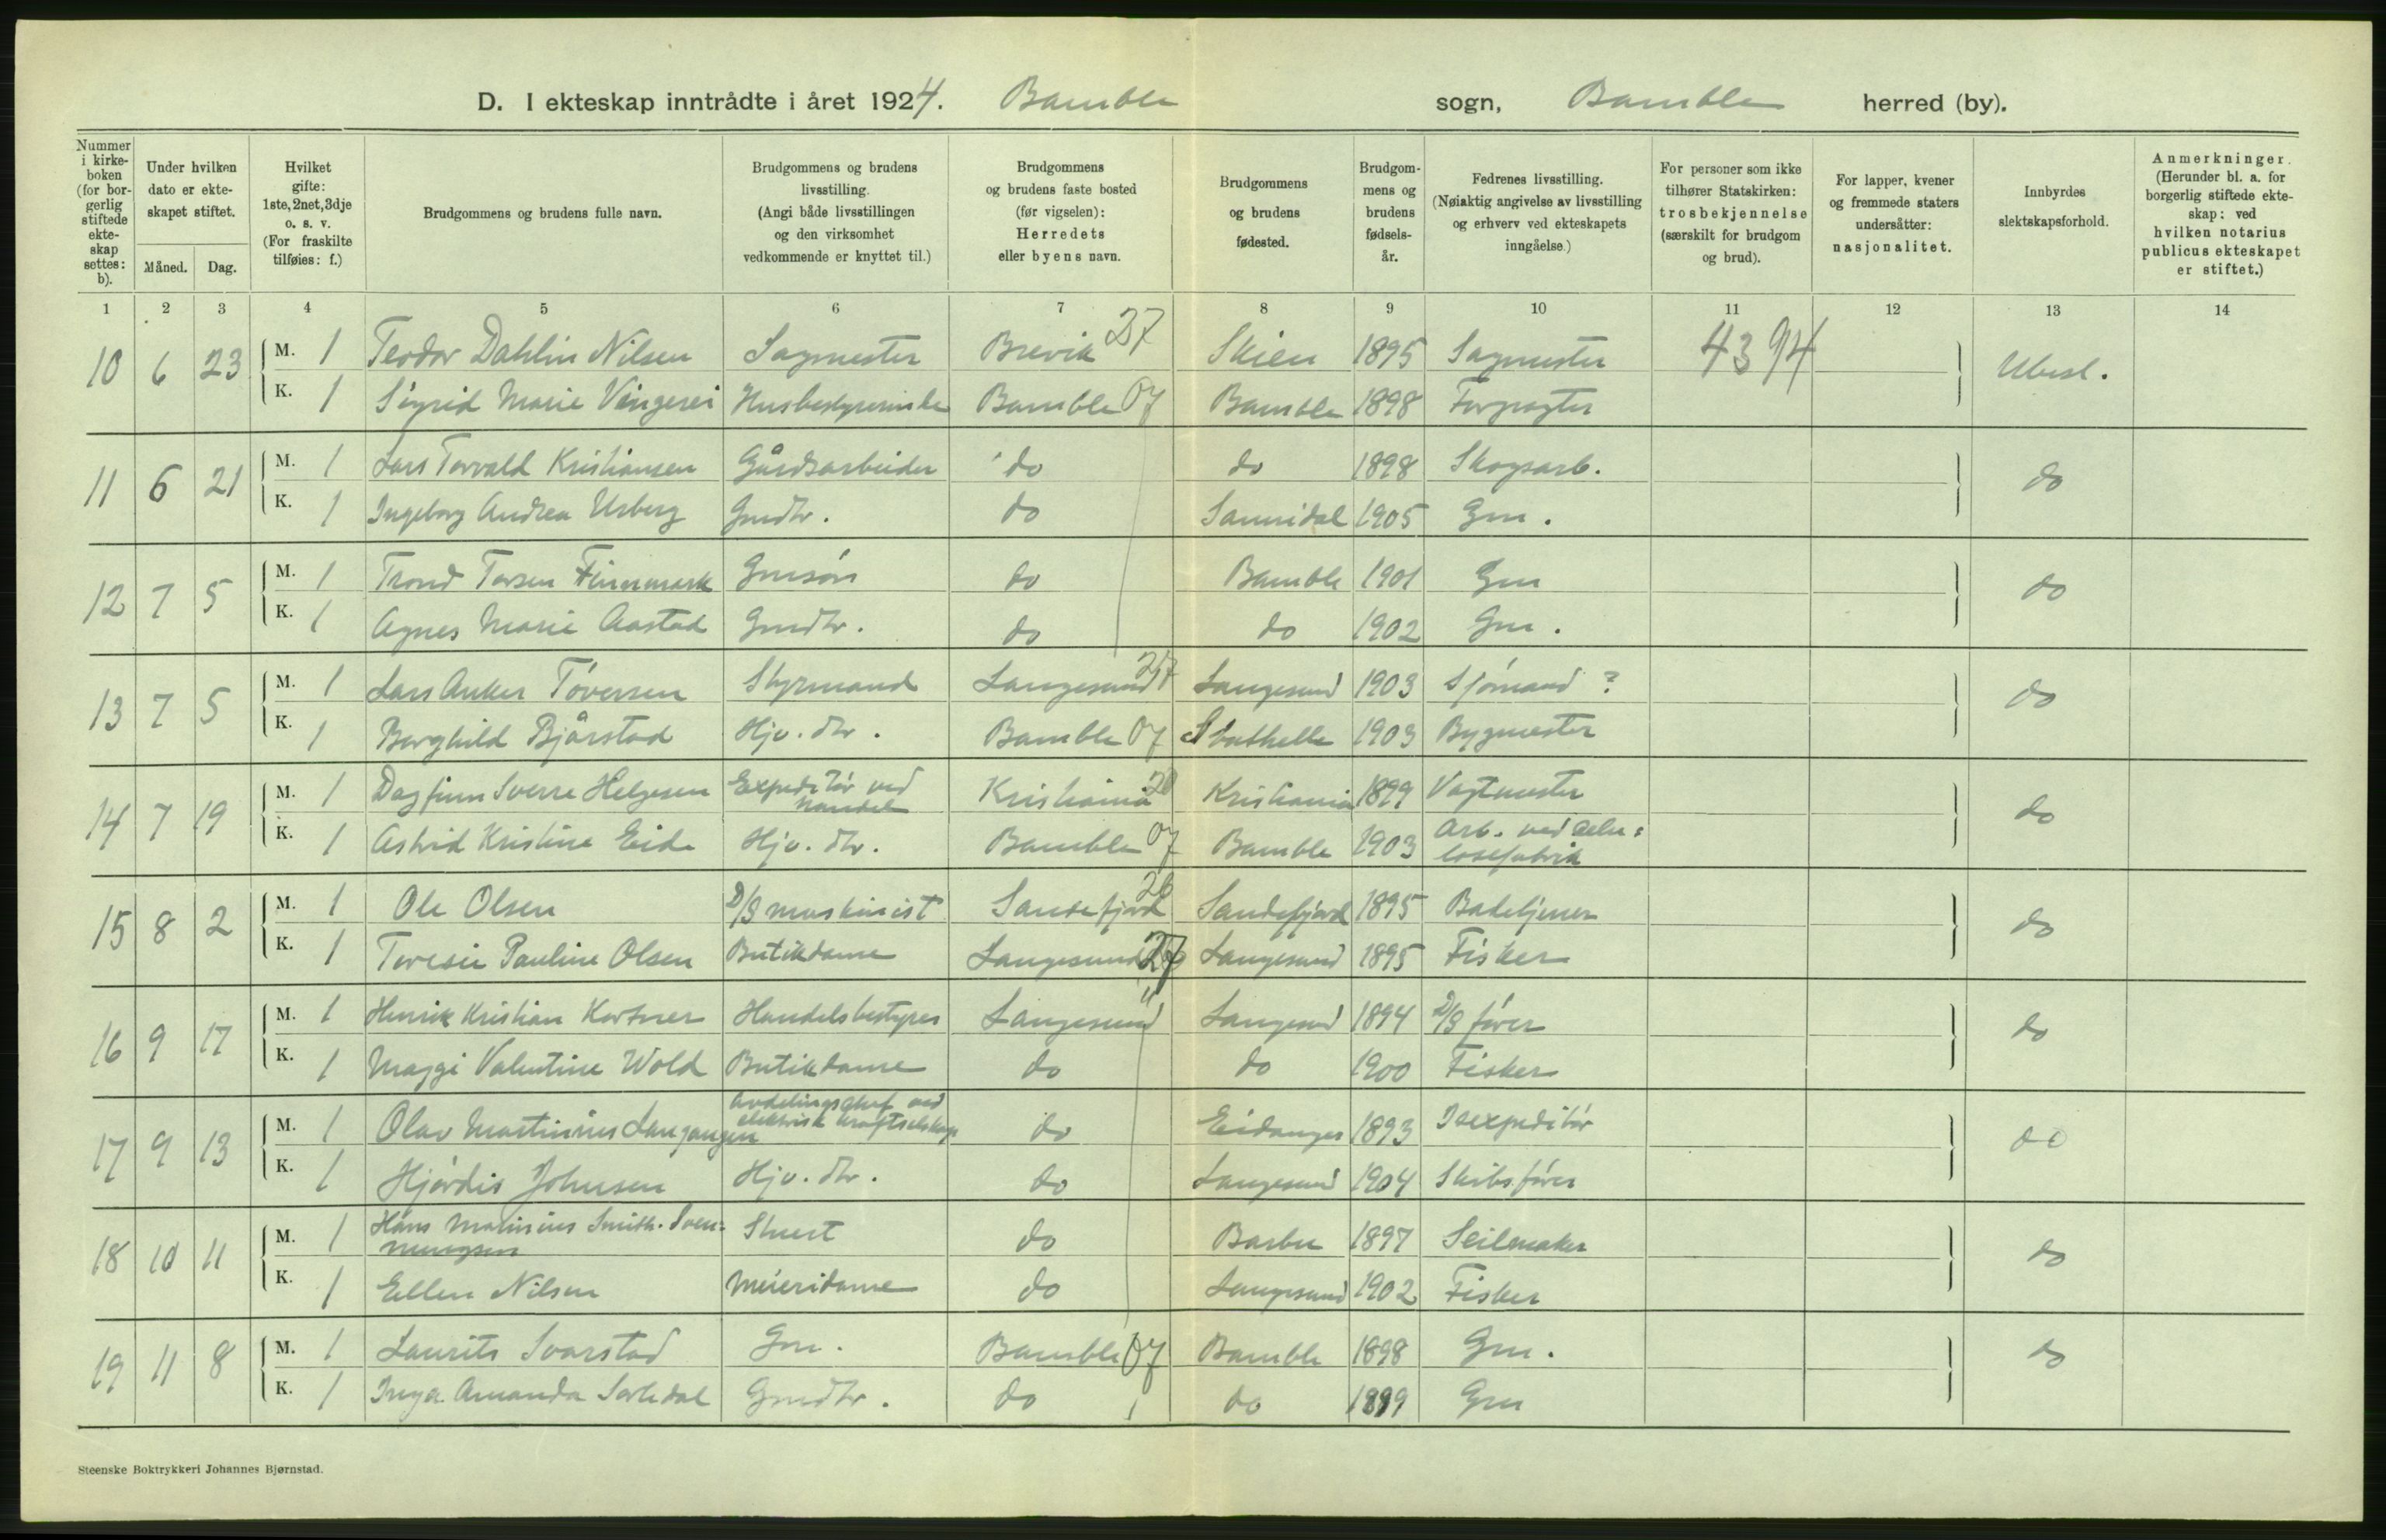 D. I ekteskap inntrådte i året 1924. Bamble sogn, Bamble herred (by).
Nummer i kirkeboken (for borgerlig stiftede ekteskap settes: b).
Under hvilken dato er ekteskapet stiftet.
Måned. Dag.
Hvilket gifte: 1ste, 2net, 3dje o. s. v. (For fraskilte tilføies: f.)
Brudgommens og brudens fulle navn.
Brudgommens og brudens livsstilling. (Angi både livsstillingen og den virksomhet vedkommende er knyttet til.)
Brudgommens og brudens faste bosted (før vigselen): Herredets eller byens navn.
Brudgommens og brudens fødested.
Brudgommens og brudens fødselsår.
Fedrenes livsstilling. (Nøiaktig angivelse av livsstilling og erhverv ved ekteskapets inngåelse.)
For personer som ikke tilhører Statskirken: trosbekjennelse (særskilt for brudgom og brud).
For lapper, kvener og fremmede staters undersåtter: nasjonalitet.
Innbyrdes slektskapsforhold.
Anmerkninger. (Herunder bl. a. for borgerlig stiftede ekteskap: ved hvilken notarius publicus ekteskapet er stiftet.)
1 2 3 4 5 6 7 8 9 10 11 12 13 14
10 6 23 M. 1 Teodor Dahlin Nilsen Sagmester Brevik 27 Skien 1895 Sagmester 4394 Ubesl.
K. 1 Sigrid Marie Vingerei Husbestyrerinde Bamble 07 Bamble 1898 Forpagter
11 6 21 M. 1 Lars Torvald Kristiansen Gårdsarbeider do do 1898 Skogsarb. do
K. 1 Ingeborg Andrea Usberg Gmdtr. do Sannidal 1905 Gm.
12 7 5 M. 1 Trond Torsen Finnmark Gmsøn do Bamble 1901 Gm do
K. 1 Agnes Marie Aastad Gmdtr. do do 1902 Gm.
13 7 5 M. 1 Lars Anker Tóversen Styrmand Langesund 27 Langesund 1903 Sjómand ? do
K. 1 Borghild Bjårstad Hjv. dtr. Bamble 07 Stathelle 1903 Bygmester
14 7 19 M. 1 Dagfinn Sverre Helgesen Expeditór ved handel Kristiania 20 Kristiania 1899 Vagtmester do
K. 1 Astrid Kristine Eide Hjv. dtr. Bamble 07 Bamble 1903 Arb. ved celulosefabrik
15 8 2 M. 1 Ole Olsen D/S maskinist Sandefjord 26 Sandefjord 1895 Badetjener do
K. 1 Toresie Pauline Olsen Butikdame Langesund 27 Langesund 1895 Fisker
16 9 17 M. 1 Henrik Kristian Kortner Handelsbestyrer Langesund " Langesund 1894 D/S fórer do
K. 1 Maggi Valentine Wold Butikdame do do 1900 Fisker
17 9 13 M. 1 Olav Martinius Langangen Avdelingschef ved elektrisk kraftselskap do Eidanger 1893 Isexpeditór do
K. 1 Hjórdis Johnsen Hjv. dtr. do Langesund 1904 Skibsfórer
18 10 11 M. 1 Hans Mathinius Smith-Svenningsen Stuert do Barbu 1897 Seilmaker do
K. 1 Ellen Nilsen Meieridame do Langesund 1902 Fisker
19 11 8 M. 1 Laurits Svarstad Gm. Bamble 07 Bamble 1898 Gm. do
K. 1 Inga Amanda Sortedal Gmdtr. do do 1899 Gm
Steenske Boktrykkeri Johannes Bjørnstad.